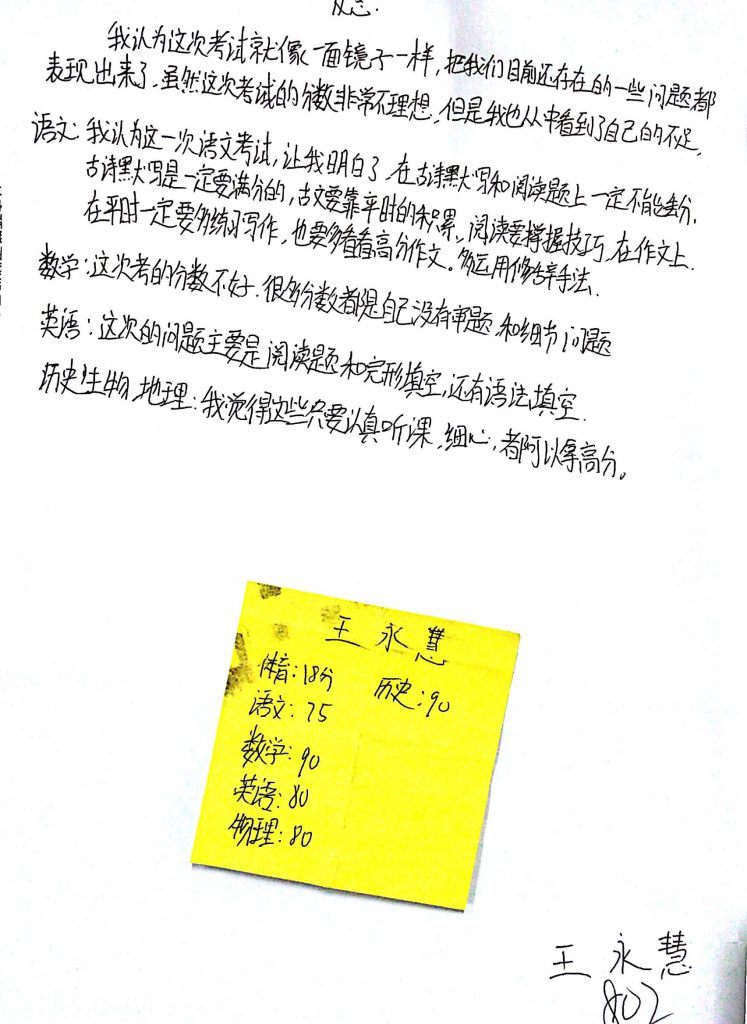 我认为这次考试就像一面镜子一样,把我们目前还存在的一些问题都
表现出来了.虽然这次考试的分数非常不理想,但是我也从中看到了自己的不足,
语文:我认为这一次语文考试,让我明白了.在古诗默写和阅读题上一定不能丢分.
古诗默写是一定要满分的,古文要靠平时的积累,阅读要掌握技巧,在作文上.
在平时一定要多练习写作,也要多看看高分作文。多运用修辞手法.
数学:这次考的分数不好.很多分数都是自己没有审题.和细节问题
英语:这次的问题主要是阅读题和完形填空,还有语法填空.
历史生物地理:我觉得这些只要认真听课,细心,都可以拿高分。
王永慧
体育:18分 历史:90
语文:75
数学:90
英语:80
物理:80
王永慧
802